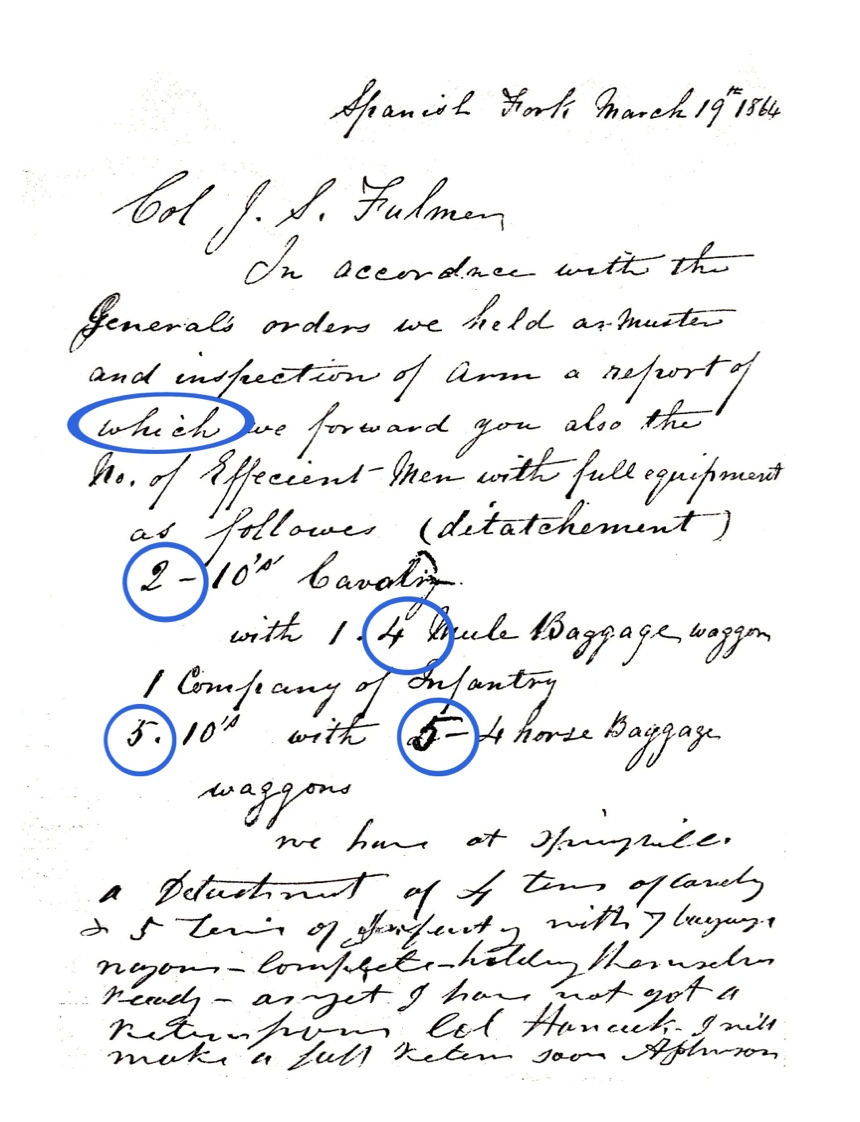 Spanish Fork March 19th 1864
Col J. S. Fulmer
In accordnce with the
General's orders we held a Muster
and inspection of Arm a report of
which we forward you also the
No. of Effecient Men with full equipment
as followes (ditatchement)
2 - 10's Cavalry
with 1. 4 Mule Baggage waggon
1 Company of Infantry
5. 10's with 5 - 4 horse Baggage
waggons
we have at Springville.
a Detachment of 4 tens of Cavely
& 5 Tens of Infenty with 7 baggage
wagons - complete - holding themselves
ready - as yet I have not got a
return from Col Hancock. I will
make a full return soon A Johnson